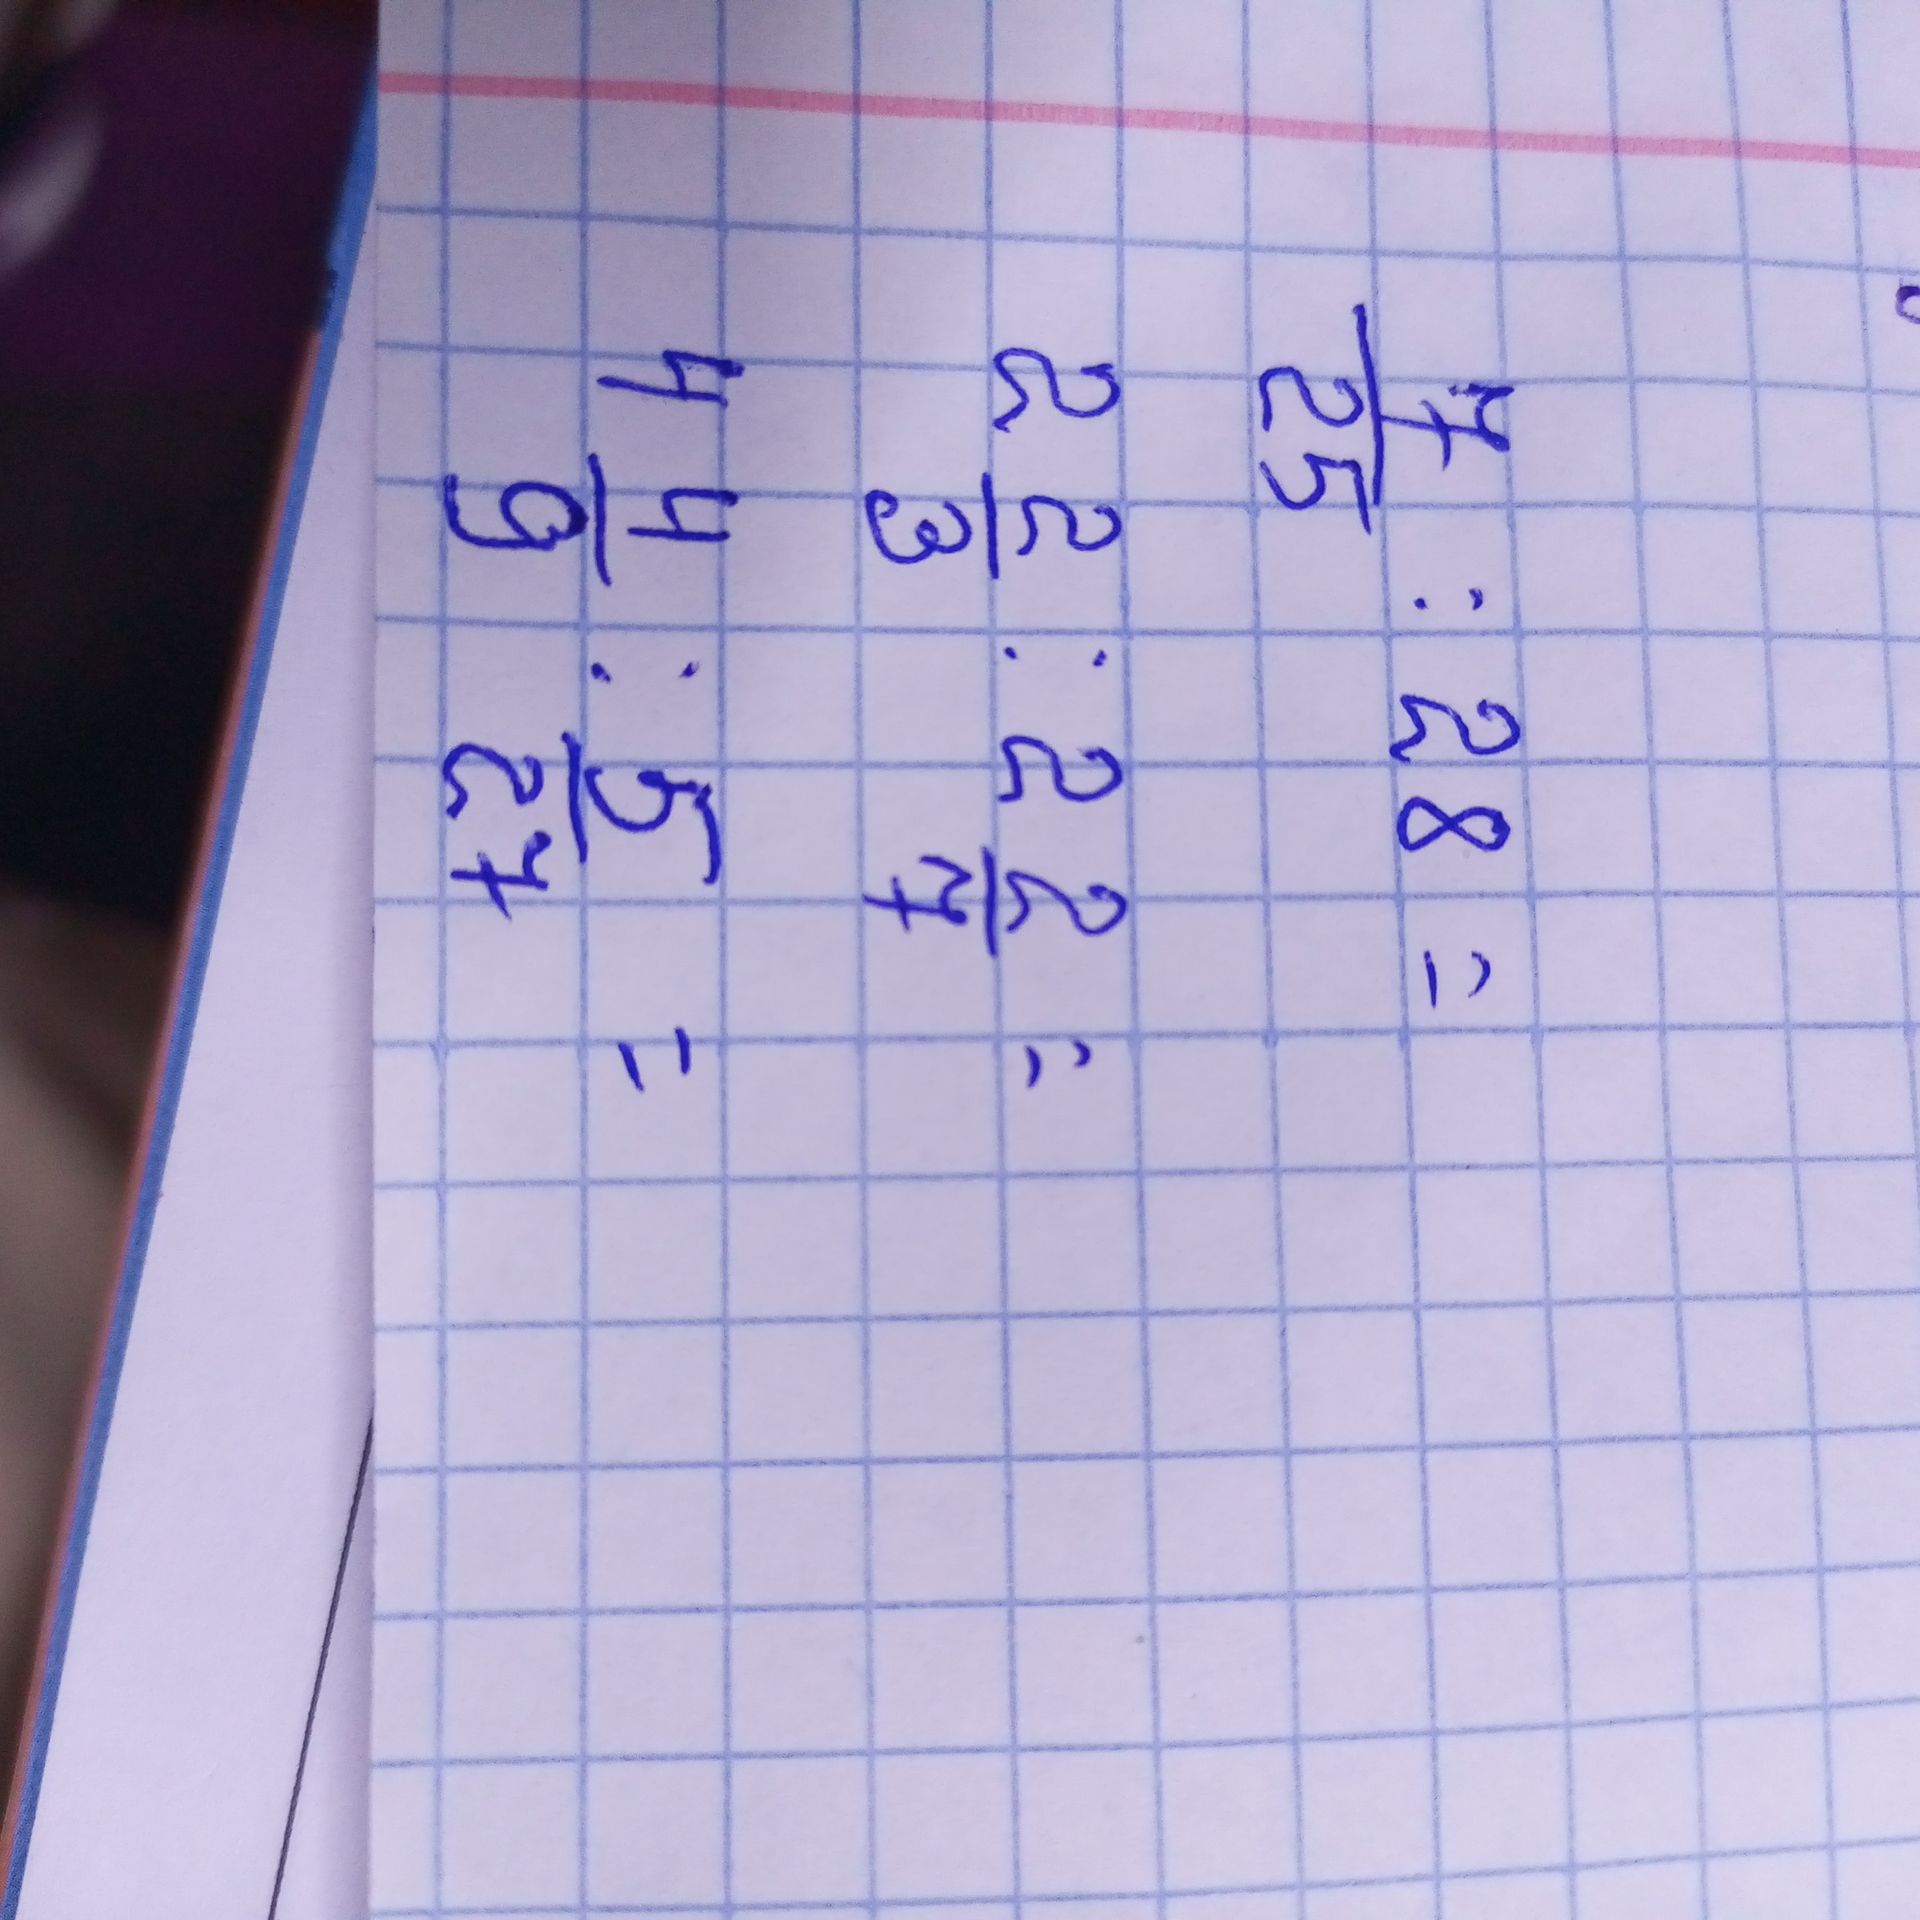 7/25 : 28 =
2 2/3 : 2 2/7 =
4 4/9 : 5/27 =